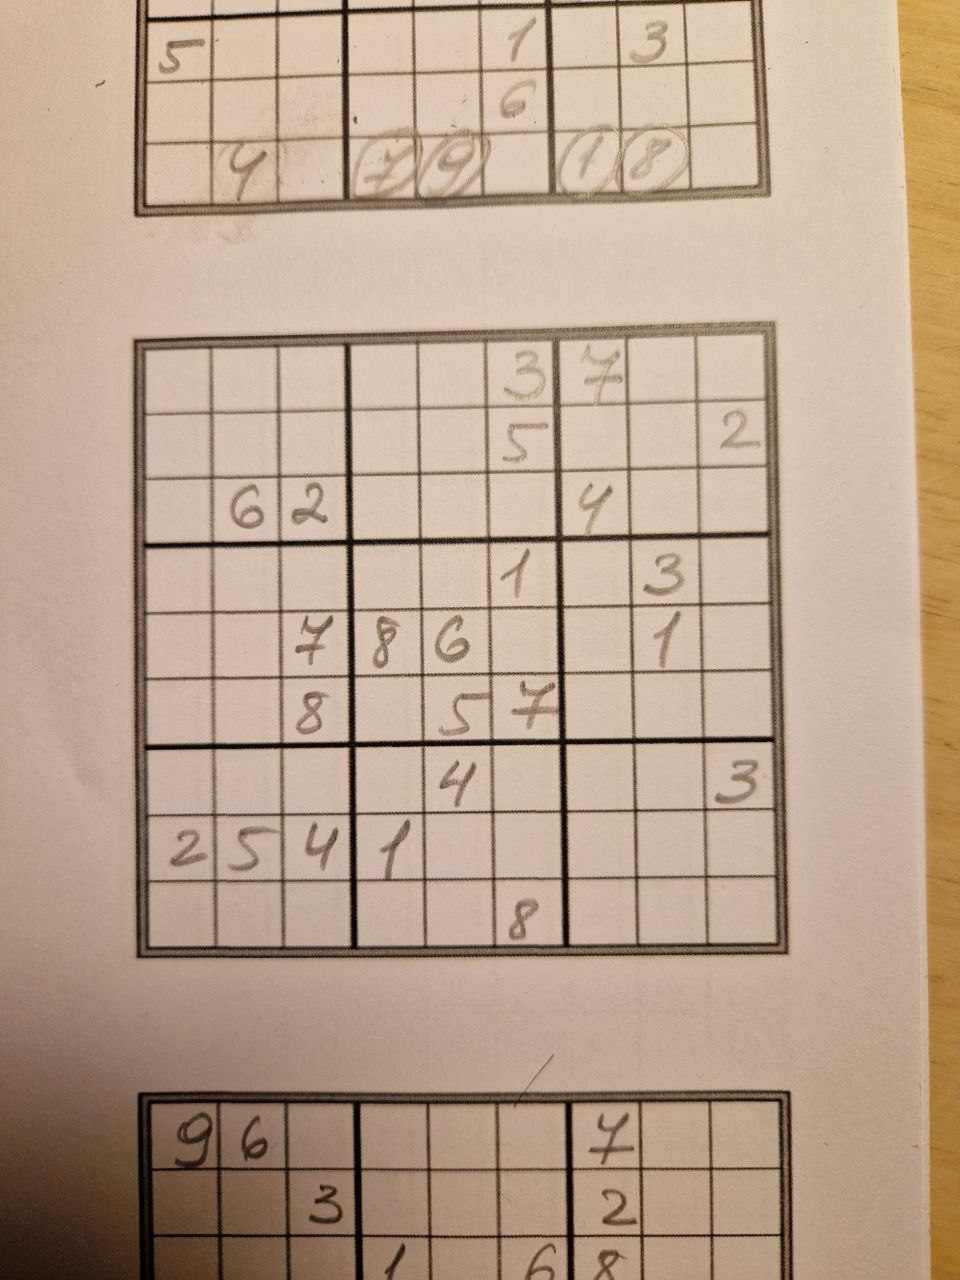 5 1 3
6
4 7 9 1 8
3 7
5 2
6 2 4
1 3
7 8 6 1
8 5 7
4 3
2 5 4 1
8
9 6 7
3 2
1 6 8